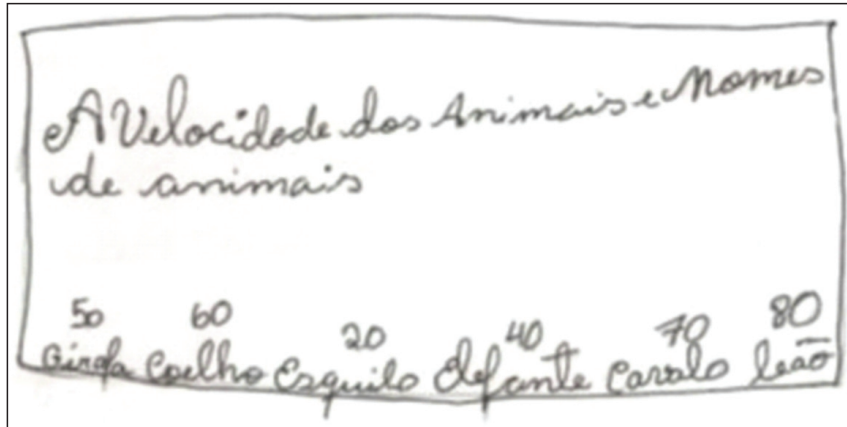 A Velocidade dos Animais e Nomes
de animais
50 60 20 40 70 80
Girafa Coelho Esquilo Elefante Cavalo leão